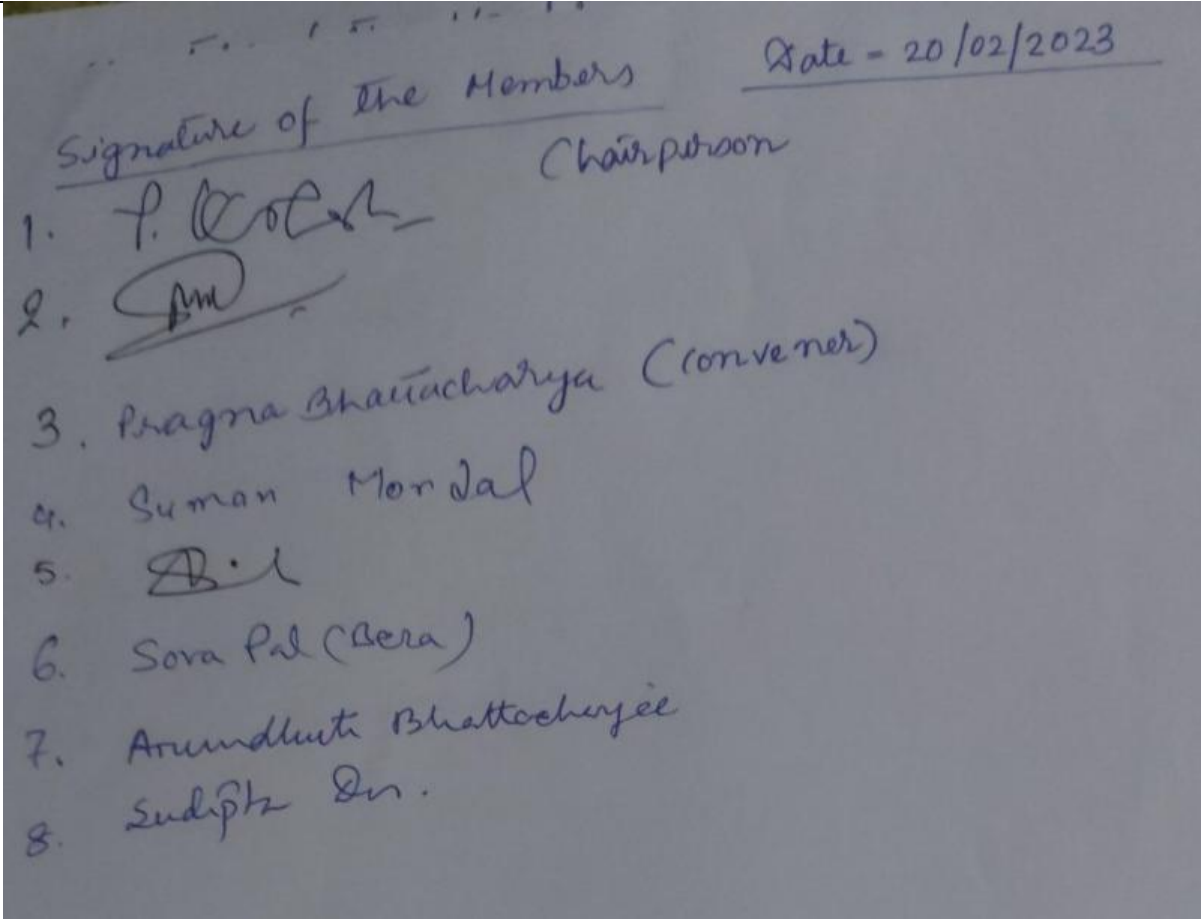 Signature of the Members Date - 20/02/2023
Chairperson
1. P.
2.
3. Pragna Bhattacharya (Convener)
4. Suman Mondal
5.
6. Sova Pal (Bera)
7. Arundhuti Bhattacherjee
8. Sudipta